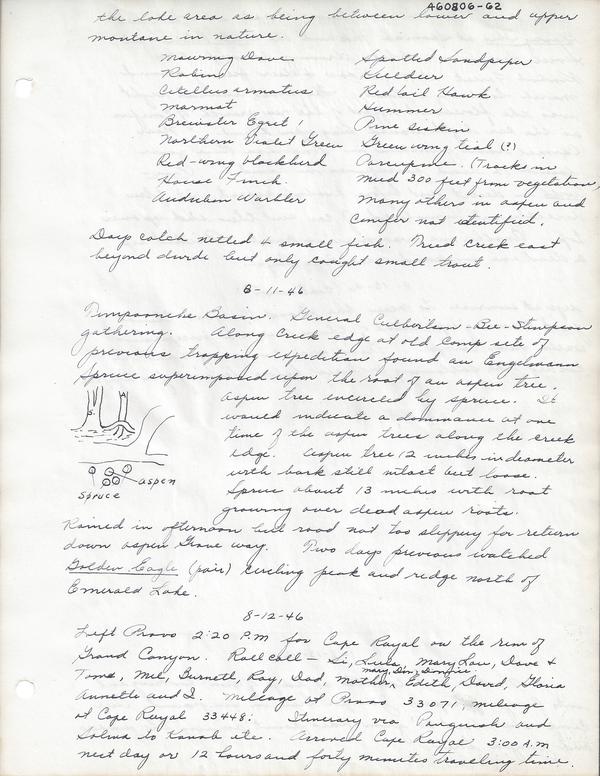 460806-62
the lake area as being between lower and upper
montane in nature.
Mourning Dove
Robins
Citellus armatus
Marmot
Brewster Egret 1
Northern Violet Green
Red-wing blackbird
House Finch.
Audubon Warbler
Spotted Sandpiper
Killdeer
Red tail Hawk
Hummer
Pine siskin
Green wing teal (?)
Porcupine. (Tracks in
mud 300 feet from vegetation,
many others in aspen and
conifer not identified.
Days catch netted 4 small fish. Tried creek east
beyond divide but only caught small trout.
8-11-46
Timpooneke Basin. General Culbertson - Bee - Stimpson
gathering. Along Creek edge at old camp site of
previous trapping expedition found an Engelmann
Spruce superimposed upon the root of an aspen tree.
Aspen tree encircled by spruce. It
would indicate a dominance at one
time of the aspen trees along the creek
edge. Aspen tree 12 inches in diameter
with bark still intact but loose.
Spruce about 13 inches with root
growing over dead aspen roots.
S.
A
aspen
Spruce
Rained in afternoon but road not too slippery for return
down aspen Grove way. Two days previous watched
Golden Eagle (pair) circling peak and ridge north of
Emerald Lake.
8-12-46
Left Provo 2:20 P.M for Cape Royal on the rim of
Grand Canyon. Roll call - Si, Lula, Mary Lou, Dave &
Toms, Mel, Burnett, Ray, Dad, Mother, Edith, David, Gloria
Annette and I. Mileage at Provo 33071, mileage
at Cape Royal 33448: Itinerary via Panguich and
Salina to Kanab etc. Arrived Cape Royal 3:00 A.M
next day or 12 hours and forty minutes traveling time.